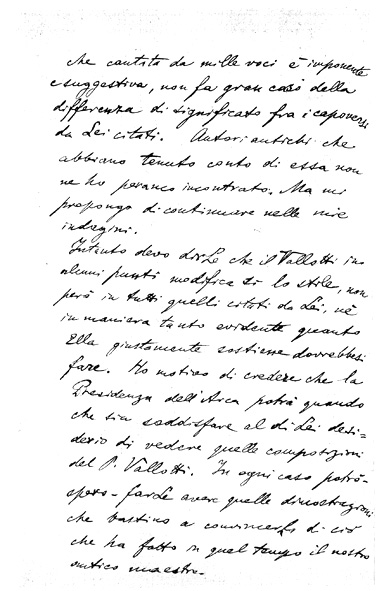 che cantata da mille voci è imponente
e suggestiva, non fa gran caso della
differenza di significato fra i capoversi
da Lei citati. Autori antichi che
abbiano tenuto conto di essa non
ne ho peranco incontrato. Ma mi
propongo di continuare nelle mie
indagini.
Intanto devo dirLe che il Vallotti in
alcuni punti modifica sì lo stile, non
però in tutti quelli citati da Lei, nè
in maniera tanto evidente quanto
Ella giustamente sostiene dovrebbesi
fare. Ho motivo di credere che la
Presidenza dell'Arca potrà quando
che sia soddisfare al di Lei desi=
derio di vedere quelle composizioni
del P. Vallotti. In ogni caso potrò-
spero-farLe avere quelle dimostrazioni
che bastino a convincerLa di ciò
che ha fatto in quel tempo il nostro
antico maestro.